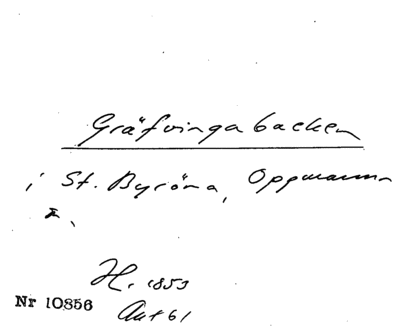 Gräfvingabacken
i St. Byröna, Oppmanna
H. 1853
Nr 10856
Akt 61